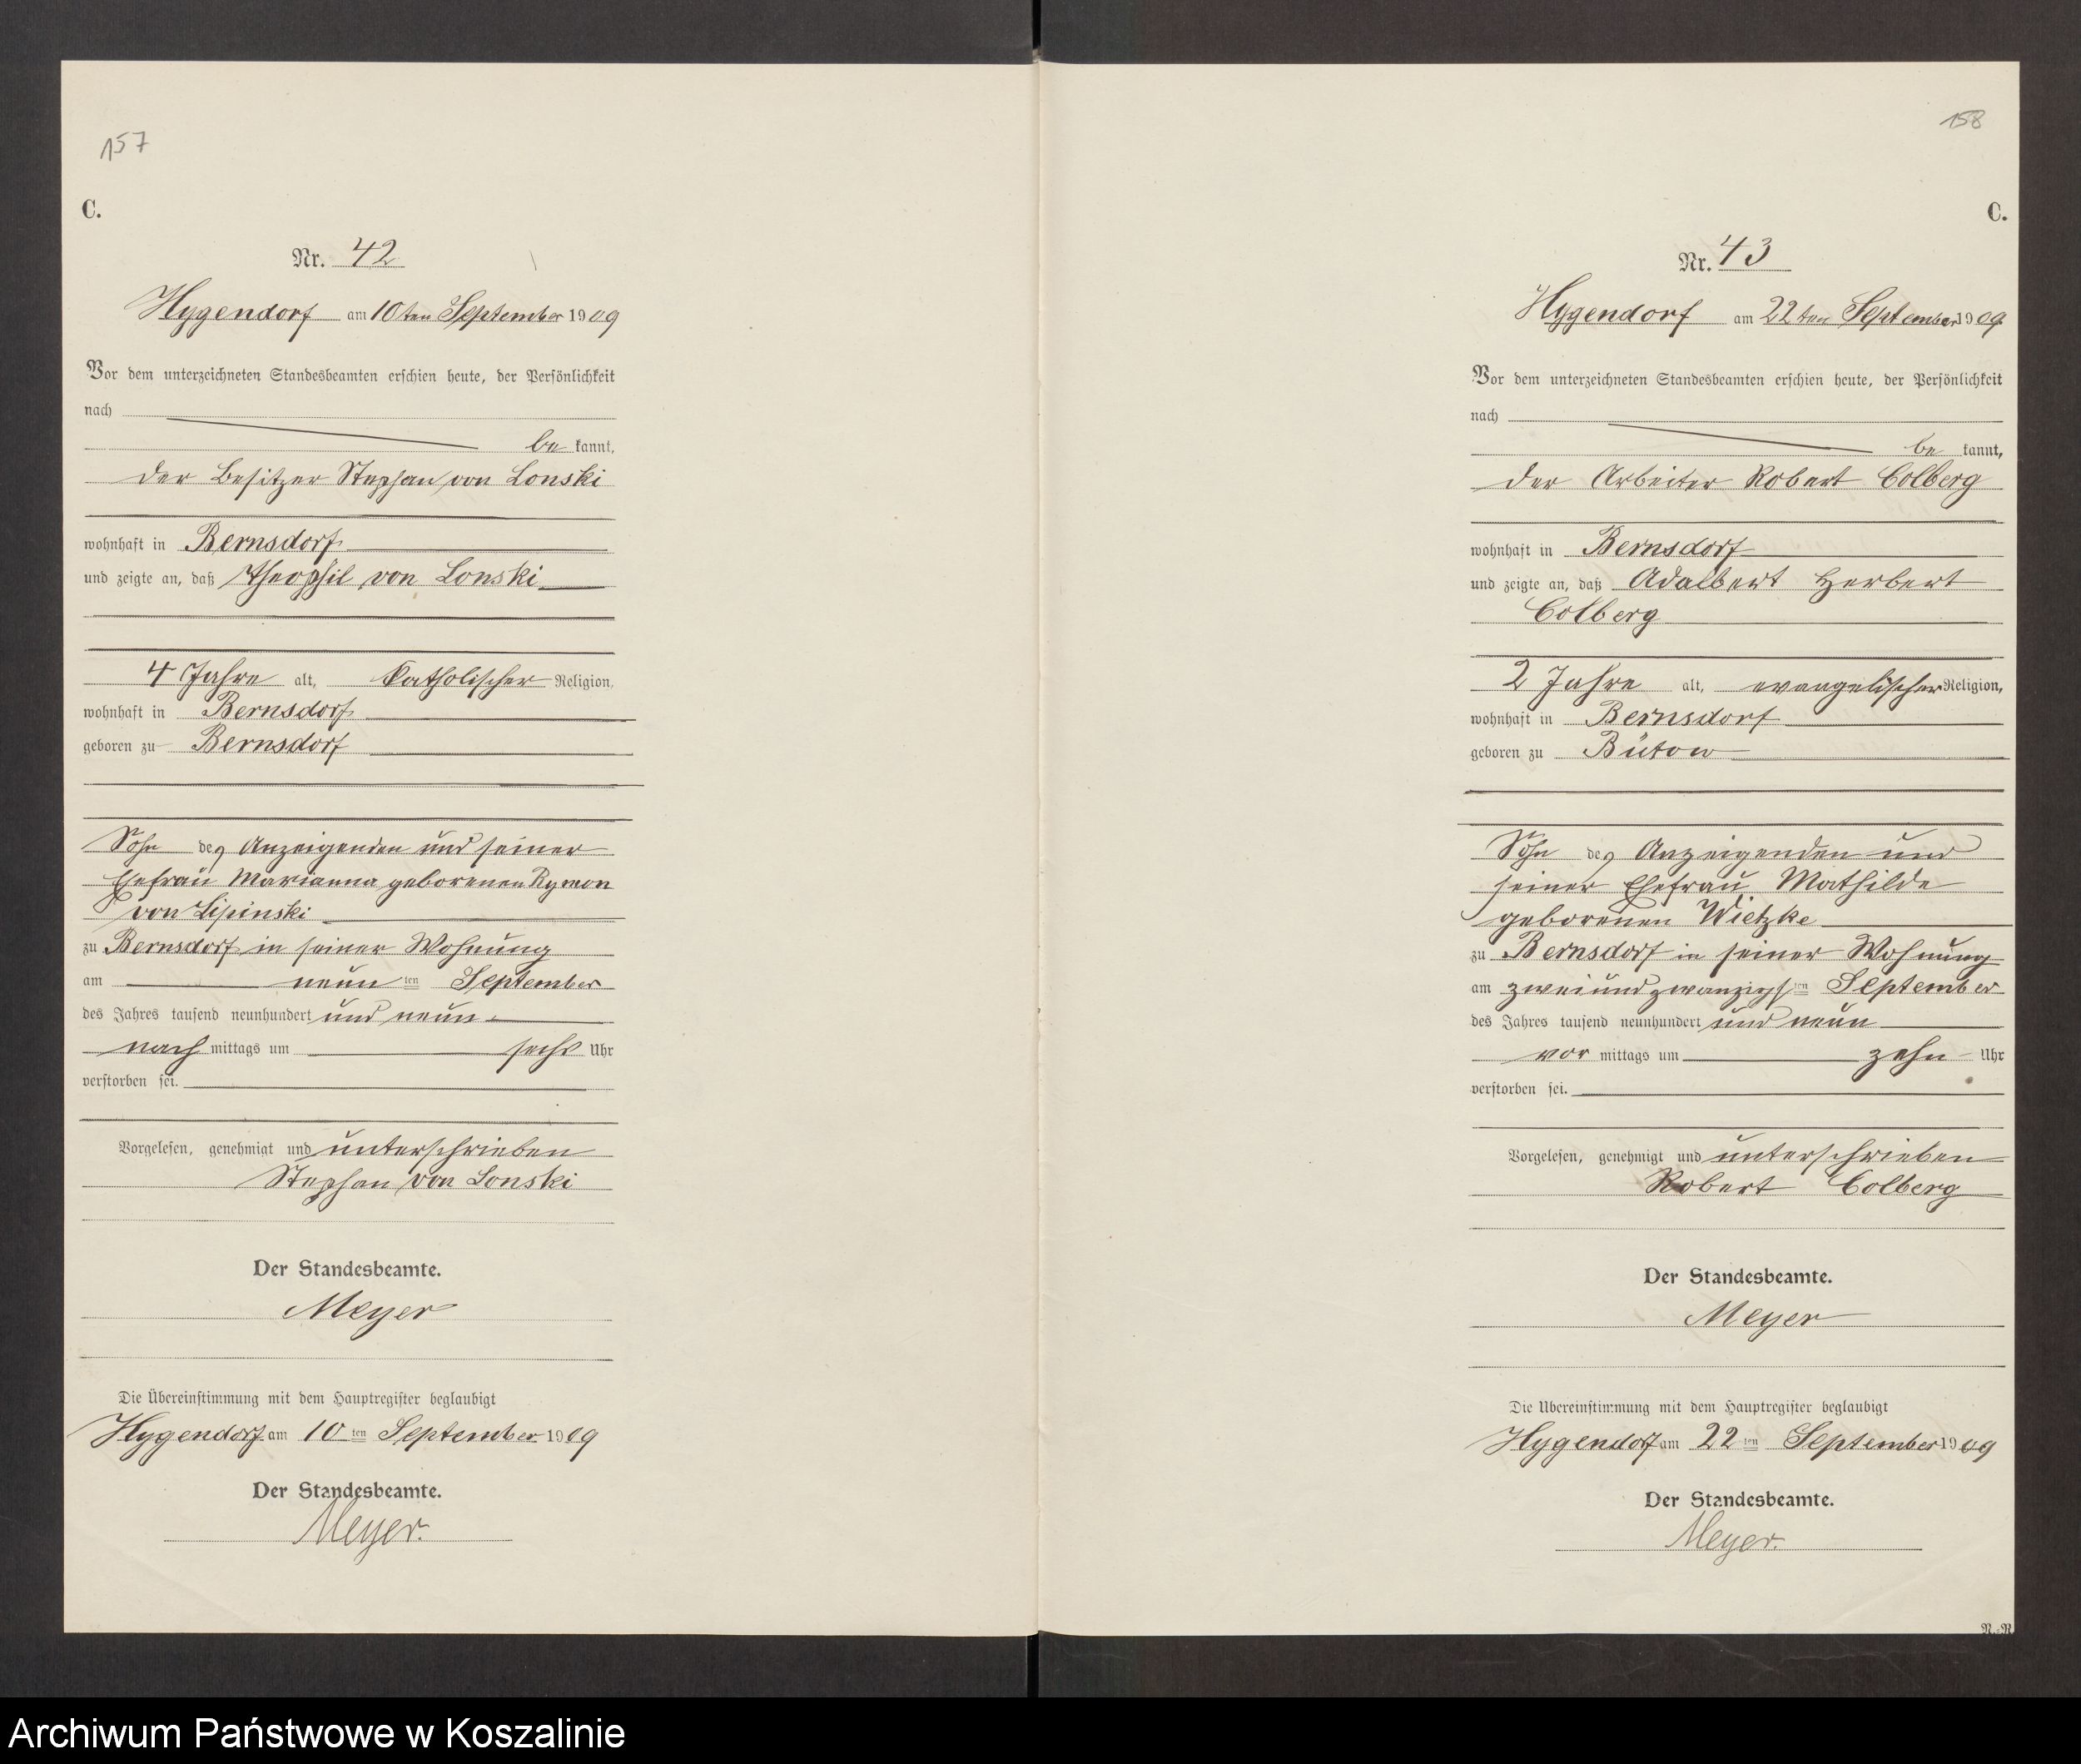 157
C.
Nr. 42
Hygendorf am 10ten September 1909
Vor dem unterzeichneten Standesbeamten erschien heute, der Persönlichkeit
nach
be kannt,
der Besitzer Stephan von Lonski
wohnhaft in Bernsdorf
und zeigte an, daß Theophil von Lonski
4 Jahre alt, katholischer Religion,
wohnhaft in Bernsdorf
geboren zu Bernsdorf
Sohn des Anzeigenden und seiner
Ehefrau Marianna geborenen Rymon
von Lipinski
zu Bernsdorf in seiner Wohnung
am neunten September
des Jahres tausend neunhundert und neun
nach mittags um sechs Uhr
verstorben sei.
Vorgelesen, genehmigt und unterschrieben
Stephan von Lonski
Der Standesbeamte.
Meyer
Die Übereinstimmung mit dem Hauptregister beglaubigt
Hygendorf am 10ten September 1909
Der Standesbeamte.
Meyer.
158
C.
Nr. 43
Hygendorf am 22ten September 1909.
Vor dem unterzeichneten Standesbeamten erschien heute, der Persönlichkeit
nach
be kannt,
der Arbeiter Robert Colberg
wohnhaft in Bernsdorf
und zeigte an, daß Adalbert Herbert
Colberg
2 Jahre alt, evangelischer Religion,
wohnhaft in Bernsdorf
geboren zu Bütow
Sohn des Anzeigenden und
seiner Ehefrau Mathilde
geborenen Wietzke
zu Bernsdorf in seiner Wohnung
am zweiundzwanzigsten September
des Jahres tausend neunhundert und neun
vor mittags um zehn Uhr
verstorben sei.
Vorgelesen, genehmigt und unterschrieben
Robert Colberg
Der Standesbeamte.
Meyer
Die Übereinstimmung mit dem Hauptregister beglaubigt
Hygendorf am 22ten September 1909
Der Standesbeamte.
Meyer.
Archiwum Państwowe w Koszalinie